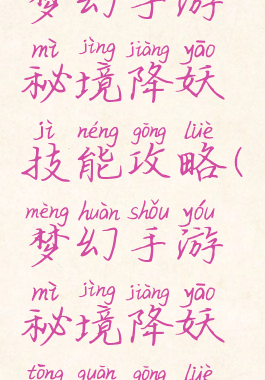 梦幻手游
mì jìng jiàng yāo
秘境降妖
jì néng gōng lüè
技能攻略(
mèng huàn shǒu yóu
梦幻手游
mì jìng jiàng yāo
秘境降妖
tōng guān gōng lüè